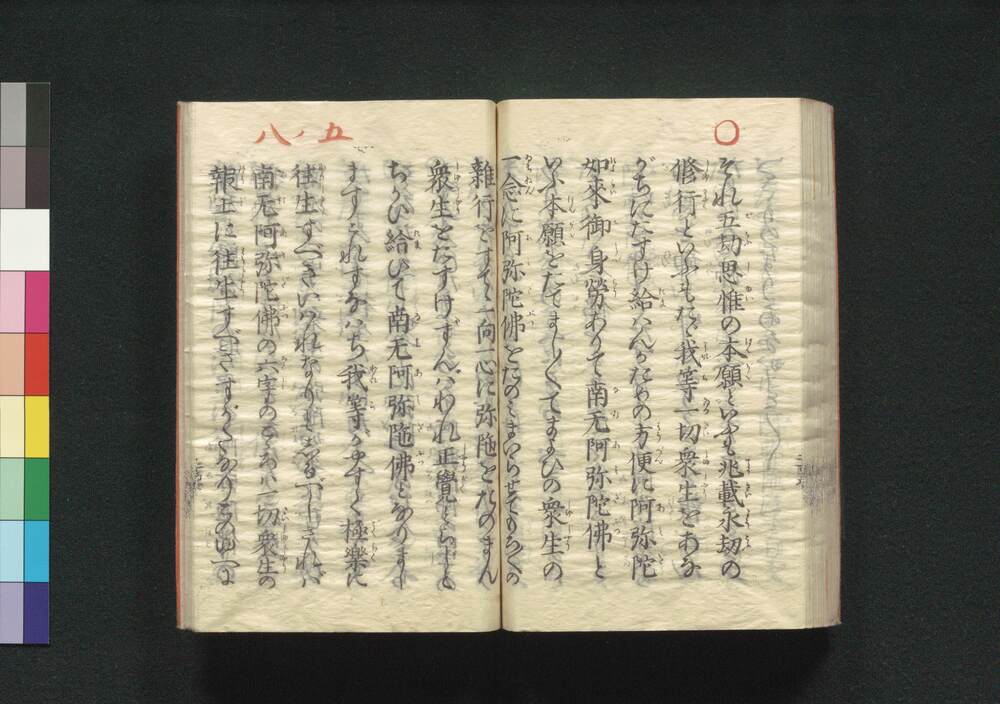 〇
それ五劫思惟の本願といふも兆載永劫の
修行といふもたゞ我等一切衆生をあな
がちにたすけ給はんがための方便に阿弥陀
如來御身勞ありて南无阿弥陀佛と
いふ本願をたてましましてまよひの衆生の
一念に阿弥陀佛をたのみまいらせてもろくの
雜行をすてゝ一向一心に弥陁をたのまん
衆生をたすけずんばわれ正覺とらじと
ちかひ給ひて南无阿弥陁佛となりまし
ますこれすなはち我等がやすく極樂に
往生すべきいはれなりとしるべしされば
南无阿弥陀佛の六字のこゝろは一切衆生の
報土に往生すべきすがたなりこのゆへに
五ノ八